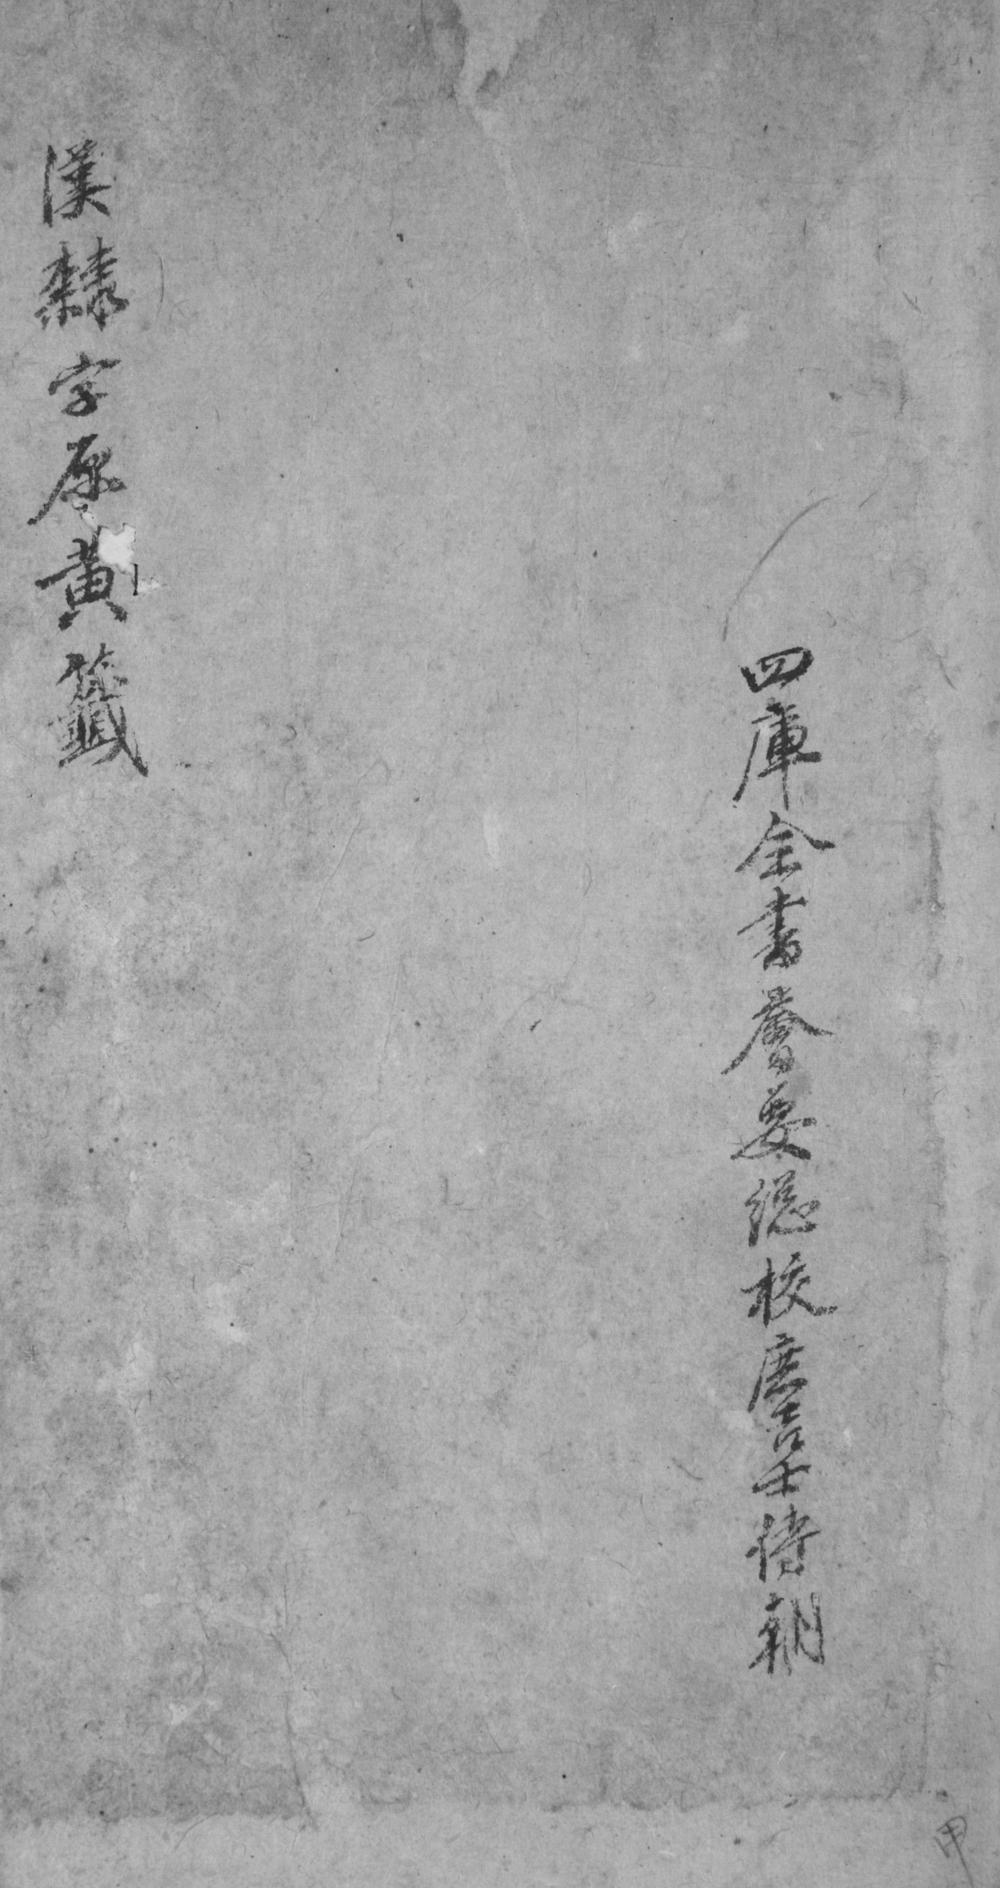 四庫全書薈要總校庶吉士侍朝
漢隸字原黄籤
甲